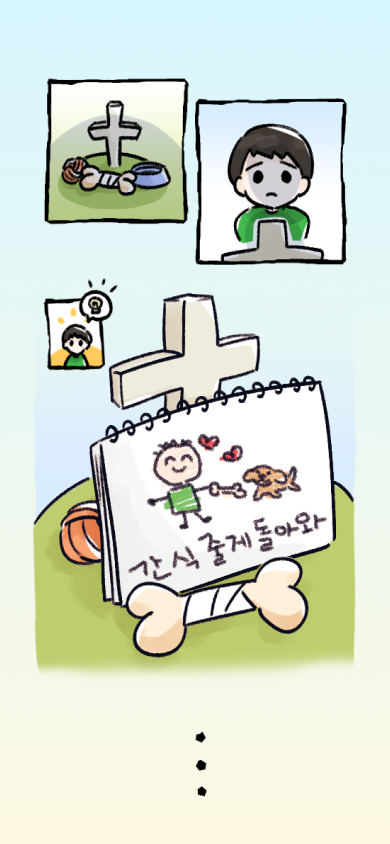 간식 줄게 돌아와